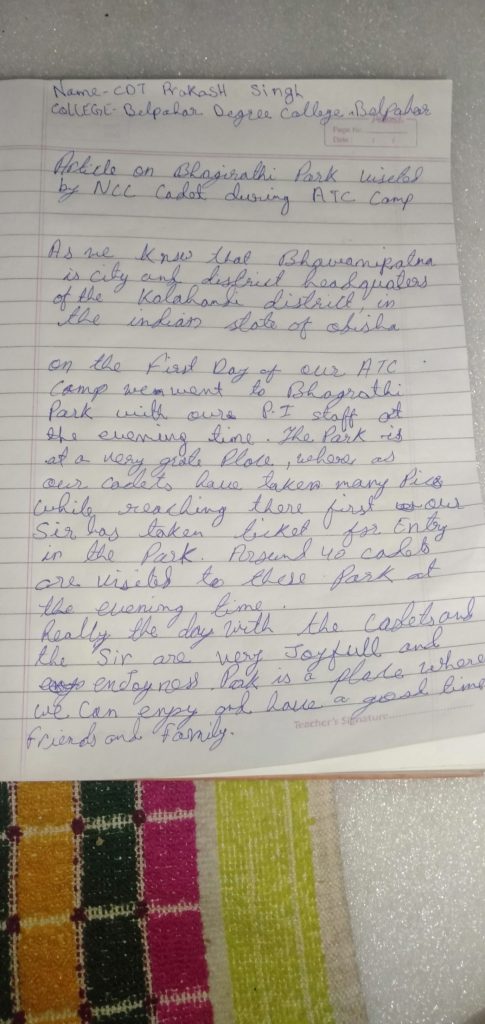 Name - CDT Prakash Singh
COLLEGE - Belpahar Degree College, Belpahar
Page No.
Date
Article on Bhagirathi Park viseled
by NCC Cadet during ATC Camp
As we know that Bhawanipatna
is city and district headquaters
of the Kalahandi district, in
the indian state of obisha
on the First Day of our ATC
Camp we went to Bhagrathi
Park with oure P.I staff at
the evening time. The Park is
at a very grate Place, where as
our cadets have taken many Pics
while reaching there first our
Sir has taken ticket for Entry
in the Park. Around 40 cadets
are visited to these Park at
the evening time.
Really the day with the cadets and
the Sir are very Joyfull and
endoyness. Pak is a place where
we can enjoy and have a good time
friends and Family.
Teacher's Signature